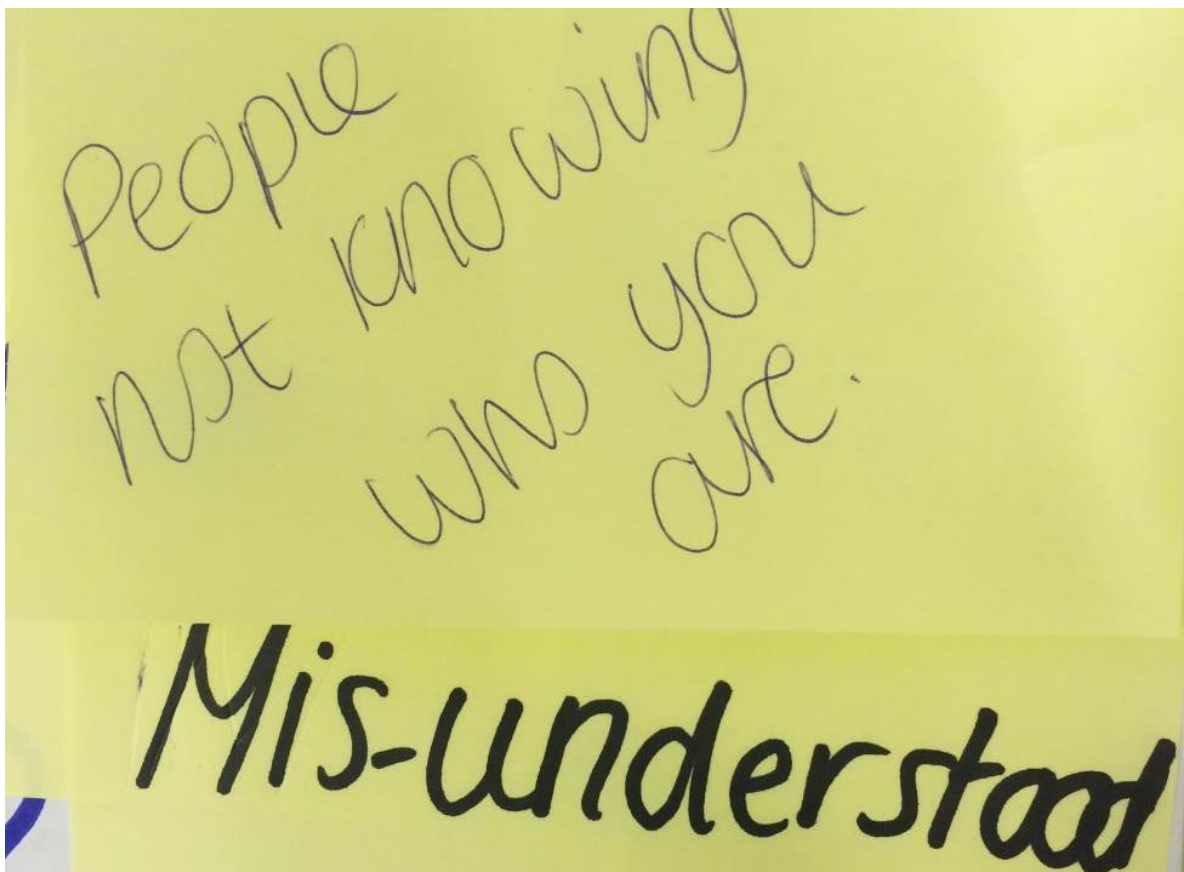 People
not knowing
who you
are.
Mis-understood